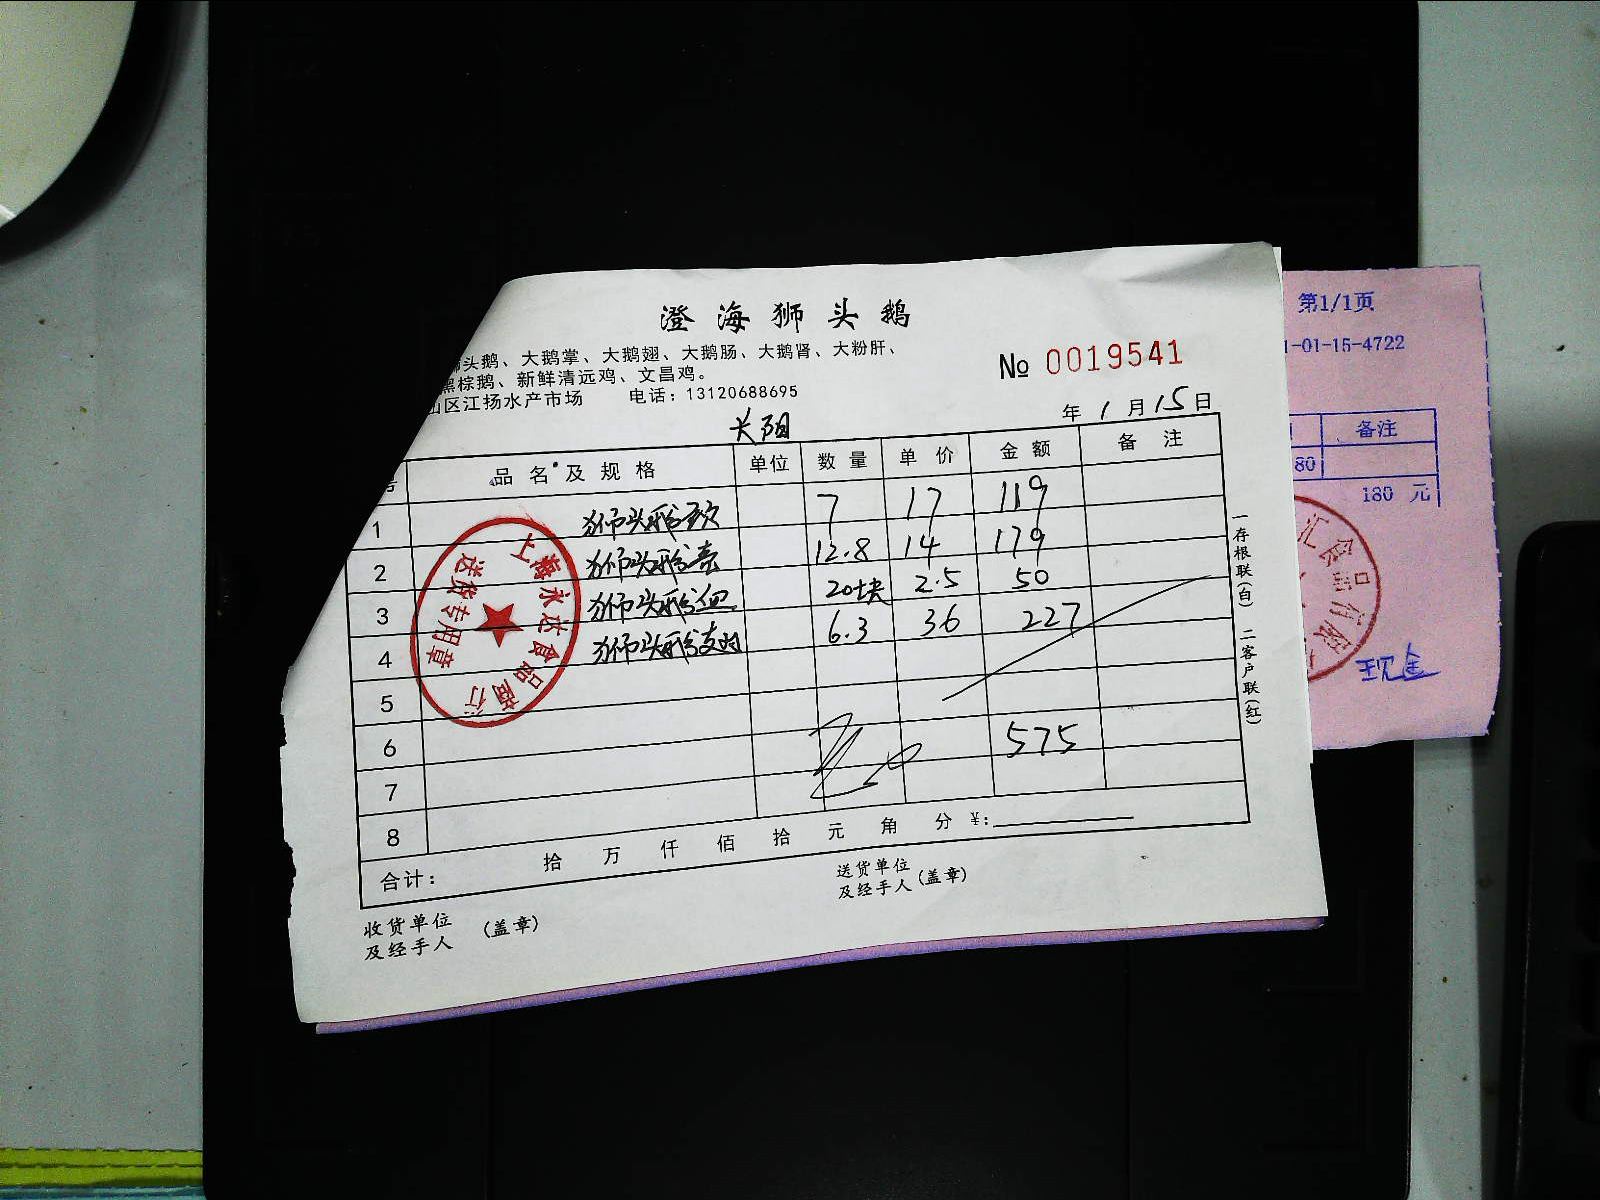 澄海狮头鹅
狮头鹅、大鹅掌、大鹅翅、大鹅肠、大鹅肾、大粉肝、
黑棕鹅、新鲜清远鸡、文昌鸡。
山区江扬水产市场 电话：13120688695
№ 0019541
长阳
年 1 月 15 日
号 品名及规格 单位 数量 单价 金额 备注
1 狮头鹅 7 17 119
2 狮头鹅 12.8 14 179
3 狮头鹅血 20块 2.5 50
4 狮头鹅 6.3 36 227
5
6
7 575
8
合计： 拾 万 仟 佰 拾 元 角 分 ¥:
收货单位
及经手人 (盖章)
送货单位
及经手人 (盖章)
一存根联(白) 二客户联(红)
上海永达食品商行
送货专用章
第1/1页
1-01-15-4722
备注
80
180 元
汇食品
现金